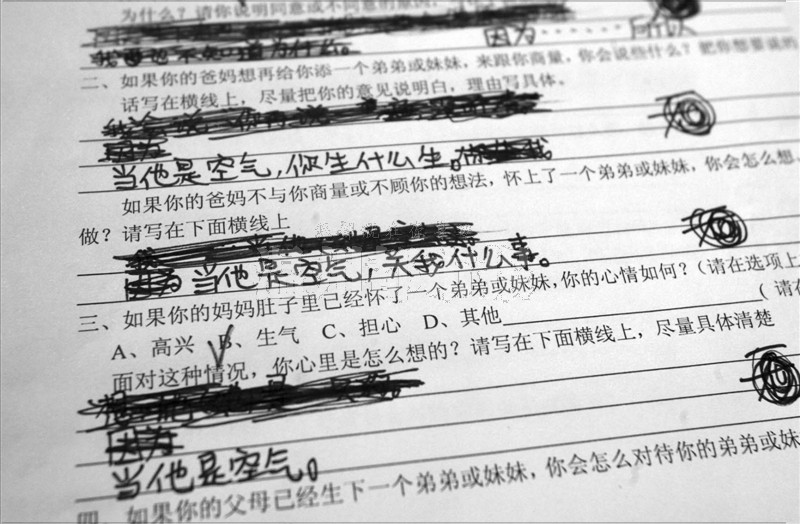 为什么？请你说明同意或不同意的原因。
我要也不知道为什么。
因为……所以
二、如果你的爸妈想再给你添一个弟弟或妹妹，来跟你商量，你会说些什么？把你想要说的
话写在横线上，尽量把你的意见说明白，理由写具体。
因为
当他是空气，你生什么生。
如果你的爸妈不与你商量或不顾你的想法，怀上了一个弟弟或妹妹，你会怎么想
做？请写在下面横线上
因为当他是空气，关我什么事。
三、如果你的妈妈肚子里已经怀了一个弟弟或妹妹，你的心情如何？（请在选项上
A、高兴 B、生气 C、担心 D、其他 （请在
面对这种情况，你心里是怎么想的？请写在下面横线上，尽量具体清楚
因为
当他是空气。
四、如果你的父母已经生下一个弟弟或妹妹，你会怎么对待你的弟弟或妹